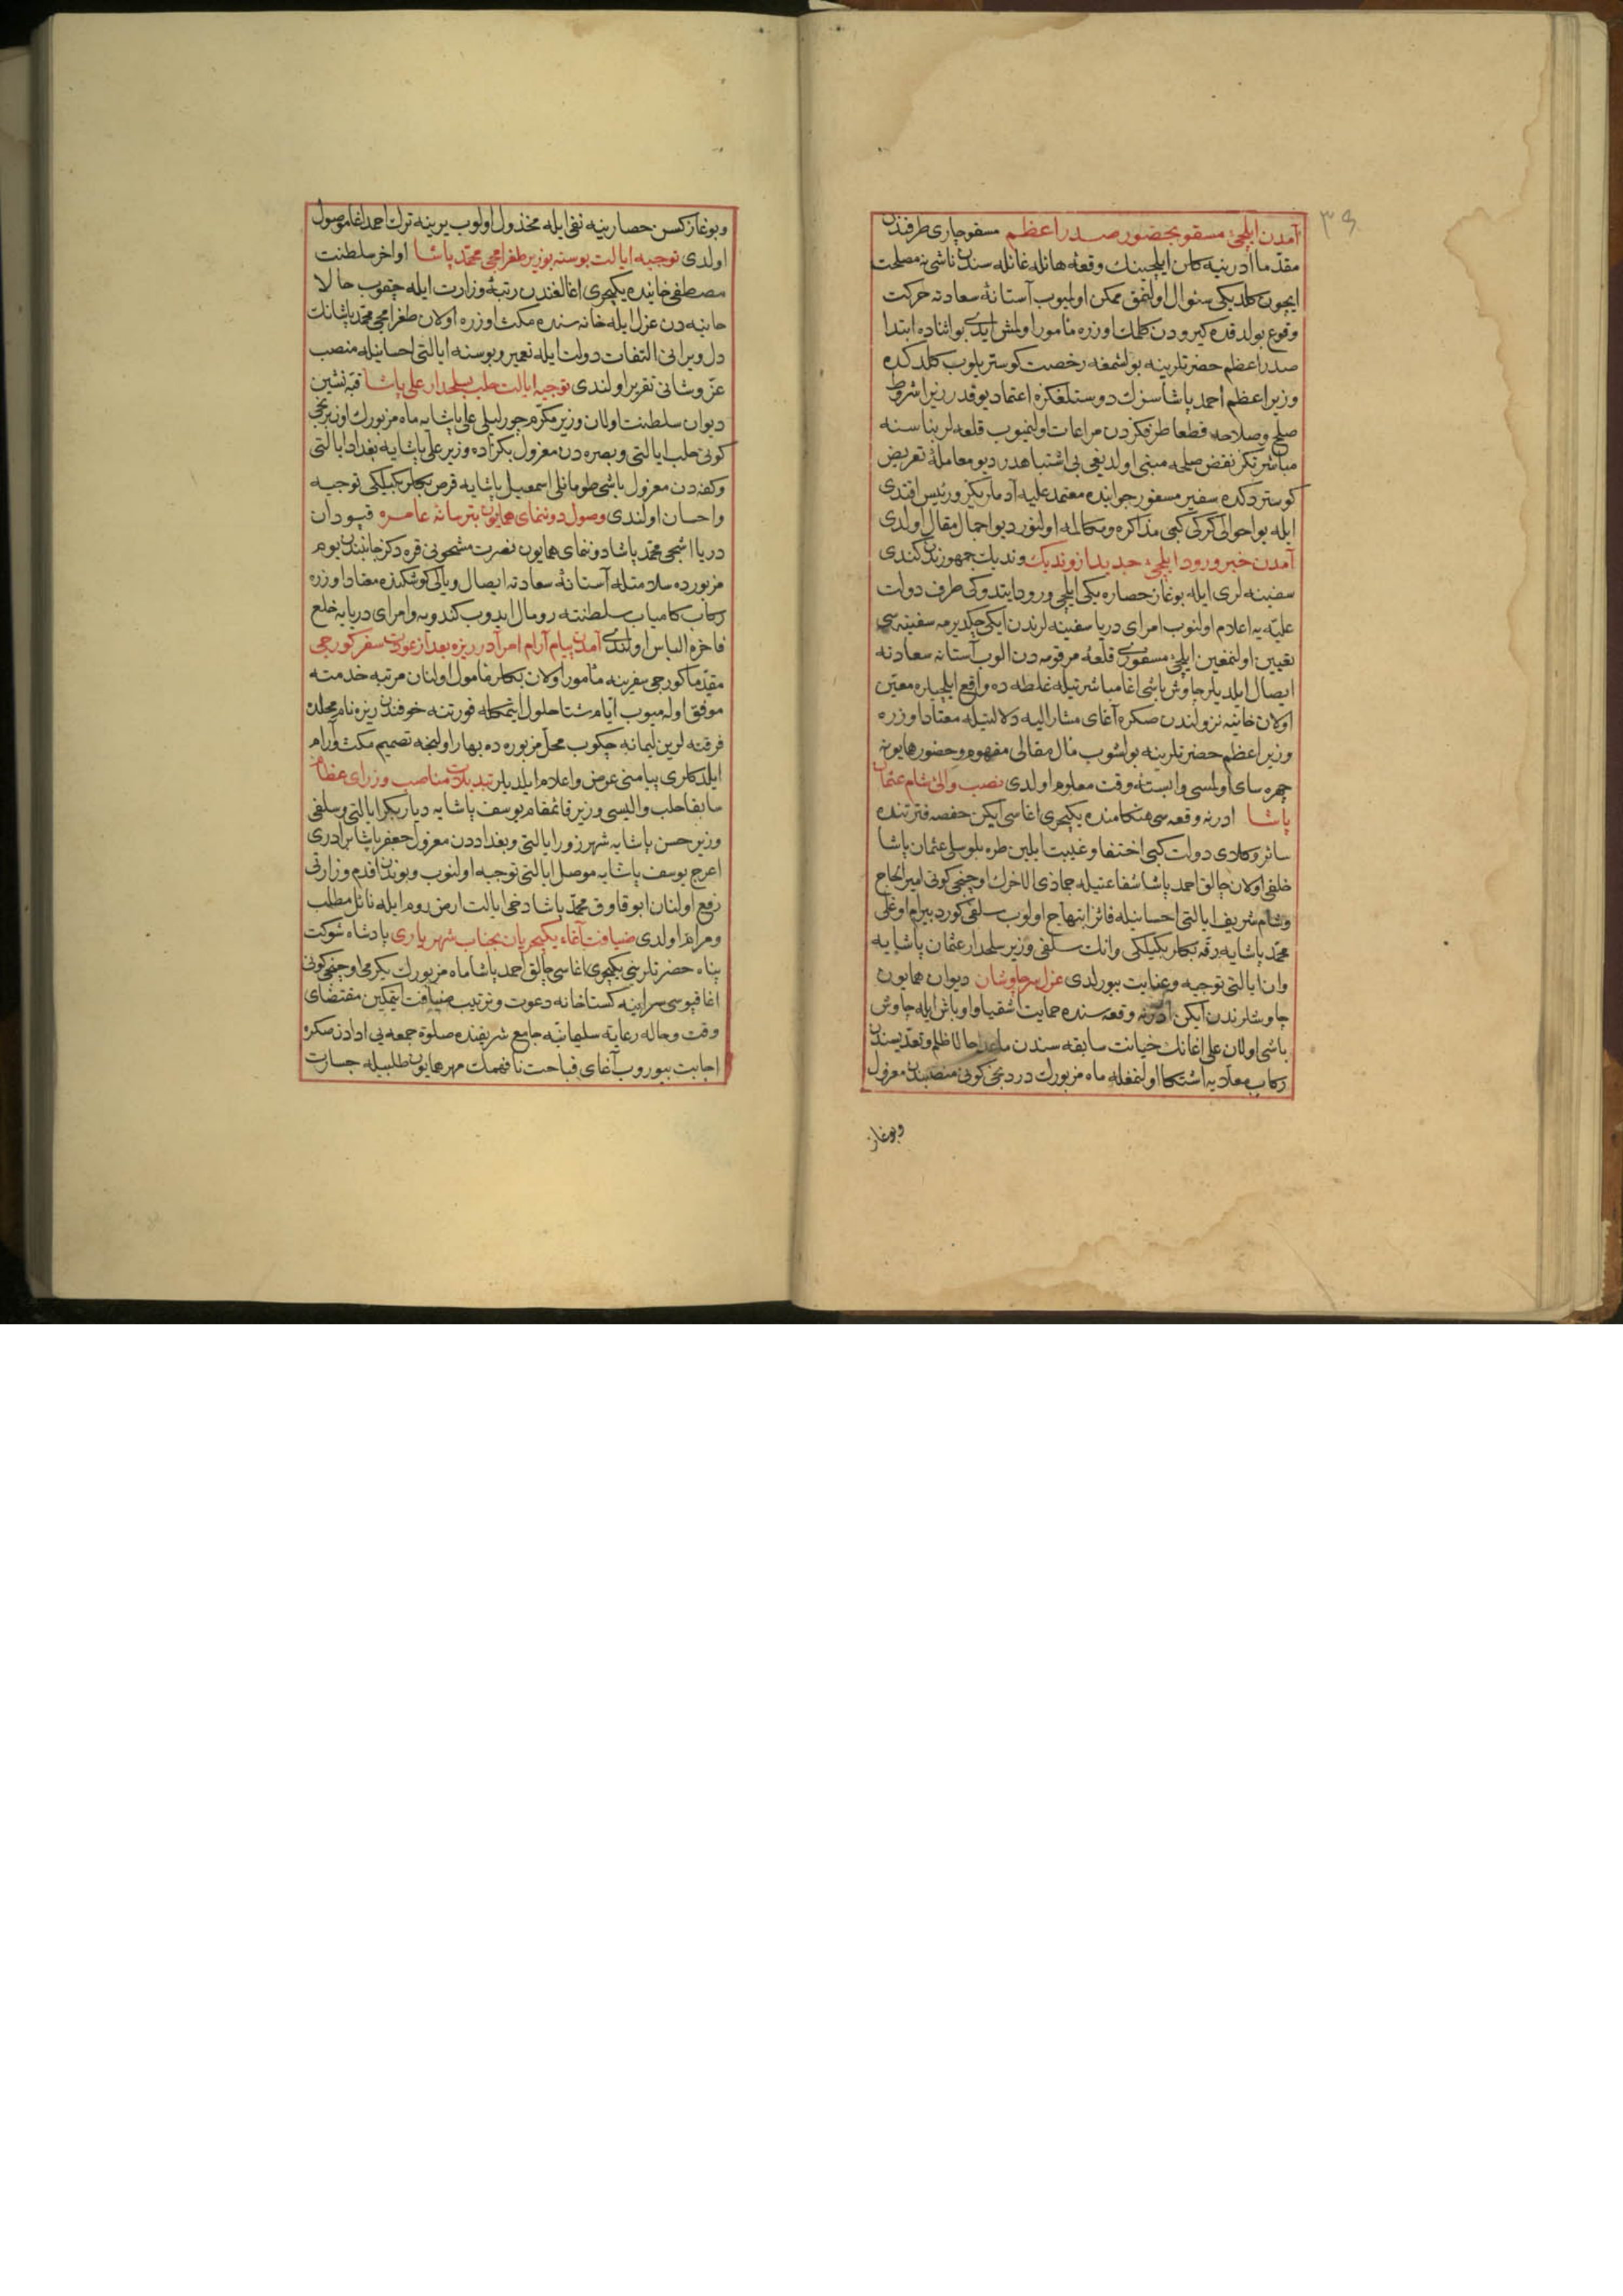 ٣٩
آمدن ایلچیٔ مسقو بحضور صدر اعظم مسقو چاری طرفندن
مقدما ادرنیه کلن ایلچینك وقعهٔ هائله غائله سندن ناشی نه مصلحت
ایچون کلدیکی سئوال اولنمق ممکن اولمیوب آستانهٔ سعادته حرکت
وقوع بولدقده کیرودن کلمك اوزره مأمور اولمش ایدی بو اثناده ابتدا
صدر اعظم حضرتلرینه بولشمغه رخصت کوستریلوب کلدکده
وزیر اعظم احمد پاشا سزك دوستلغکزه اعتماد یوقدر زیرا شروط
صلح وصلاحه قطعا طرفکزدن مراعات اولنمیوب قلعه لر بناسنه
مباشرتکز نقض صلحه مبنی اولدیغی بی اشتباهدر دیو معاملهٔ تعریض
کوستردکده سفیر مسفور جوابنده معتمد علیه آدملریکز ورئیس افندی
ایله بو احوالی کرکی کبی مذاکره ومکالمه اولنور دیو اجمال مقال اولدی
آمدن خبر ورود ایلچیٔ جدید از وندیك وندیك جمهورندن کندی
سفینه لری ایله بوغاز حصاره یکی ایلچی ورود ایتدوکی طرف دولت
علیّه یه اعلام اولنوب امرای دریا سفینه لرندن ایکی چکدیرمه سفینه سی
تعیین اولنمغین ایلچیٔ مسفوری قلعهٔ مرقومه دن الوب آستانه سعادته
ایصال ایلدیلر چاوش باشی اغا مباشرتیله غلطه ده واقع ایلچیلره معیّن
اولان خانیه نزولندن صکره آغای مشار الیه دلالتیله معتاد اوزره
وزیر اعظم حضرتلرینه بولشوب مٔال مقالی مفهوم وحضور همایونه
چهره سای اولمسی وابستهٔ وقت معلوم اولدی نصب والیٔ شام عثمان
پاشا ادرنه وقعه سی هنکامنده یکیچری اغاسی ایکن حفصه فترتنده
سائر وکلای دولت کبی اختفا وغیبت ایلین طره بلوسلی عثمان پاشا
خلفی اولان چالق احمد پاشا شفاعتیله جماذی الاخرك اوچنجی کونی امیر الحاج
وشام شریف ایالتی احسانیله فائز ابتهاج اولوب سلفی کورد بیرام اوغلی
محمد پاشایه رقّه بکلربکیلکی وانك سلفی وزیر سلحدار عثمان پاشایه
وان ایالتی توجیه وعنایت بیورلدی عزل سرچاوشان دیوان همایون
چاوشلرندن ایکن ادرنه وقعه سنده حمایت اشقیا واوباش ایله چاوش
باشی اولان علی اغانك خیانت سابقه سندن ماعدا حالا ظلم وتعدّیسندن
رکاب معلّایه اشتکا اولنمغله ماه مزبورك دردنجی کونی منصبندن معزول
وبوغاز
وبوغاز کسن حصارینه نفی ایله مخذول اولوب یرینه ترك احمد اغا موصول
اولدی توجیه ایالت بوسنه بوزیر طغرامجی محمّد پاشا اواخر سلطنت
مصطفی خانیده یکیچری اغالغندن رتبهٔ وزارت ایله چقوب حالا
حانیه دن عزل ایله خانه سنده مکث اوزره اولان طغرامجی محمّد پاشانك
دل ویرانی التفات دولت ایله تعمیر وبوسنه ایالتی احسانیله منصب
عزّ وشانی تقریر اولندی توجیه ایالت حلب بسلحدار علی پاشا قبّه نشین
دیوان سلطنت اولان وزیر مکرّم چورلیلی علی پاشایه ماه مزبورك اون برنجی
کونی حلب ایالتی وبصره دن معزول بکزاده وزیر علی پاشایه بغداد ایالتی
وکفه دن معزول باشی طومانلی اسمعیل پاشایه قرص بکلربکیلکی توجیه
واحسان اولندی وصول دوننمای همایون بترسانه عامره قپودان
دریا اشجی محمّد پاشا دوننمای همایون نصرت مشحونی قره دکز جانبندن یوم
مزبورده سلامتله آستانهٔ سعادته ایصال ویالی کوشکنده معتاد اوزره
رکاب کامیاب سلطنته رومال ایدوب کندویه وامرای دریایه خلع
فاخره الباس اولندی آمدن پیام آرام امرا در ریزه بعد از عودت سفر کورجی
مقدّما کورجی سفرینه مأمور اولان بکلر مأمول اولنان مرتبه خدمته
موفق اوله میوب ایّام شتا حلول ایتمکله فورتنه خوفندن ریزه نام محلده
فرقته لرین لیمانه چکوب محلّ مزبوره ده بهار اولنجه تصمیم مکث وآرام
ایلدکلری پیامنی عرض واعلام ایلدیلر تبدیلات مناصب وزرای عظام
سابقا حلب والیسی وزیر قائمقام یوسف پاشایه دیاربکر ایالتی وسلفی
وزیر حسن پاشایه شهرزور ایالتی وبغداددن معزول جعفر پاشا برادری
اعرج یوسف پاشایه موصل ایالتی توجیه اولنوب وبوندن اقدم وزارتی
رفع اولنان ابو قاوق محمّد پاشا دخی ایالت ارض روم ایله نائل مطلب
ومرام اولدی ضیافت آغاء یکیچریان بجناب شهریاری پادشاه شوکت
پناه حضرتلرینی یکیچری اغاسی چالق احمد پاشا ماه مزبورك یکرمی اوچنجی کونی
اغا قپوسی سراینه کستاخانه دعوت وترتیب ضیافت ایتمکین مقتضای
وقت وحاله رعایة سلیمانیّه جامع شریفنده صلوة جمعه یی ادادن صکره
اجابت بیوروب آغای قباحت نافهمك مهر همایون طلبیله جسارت